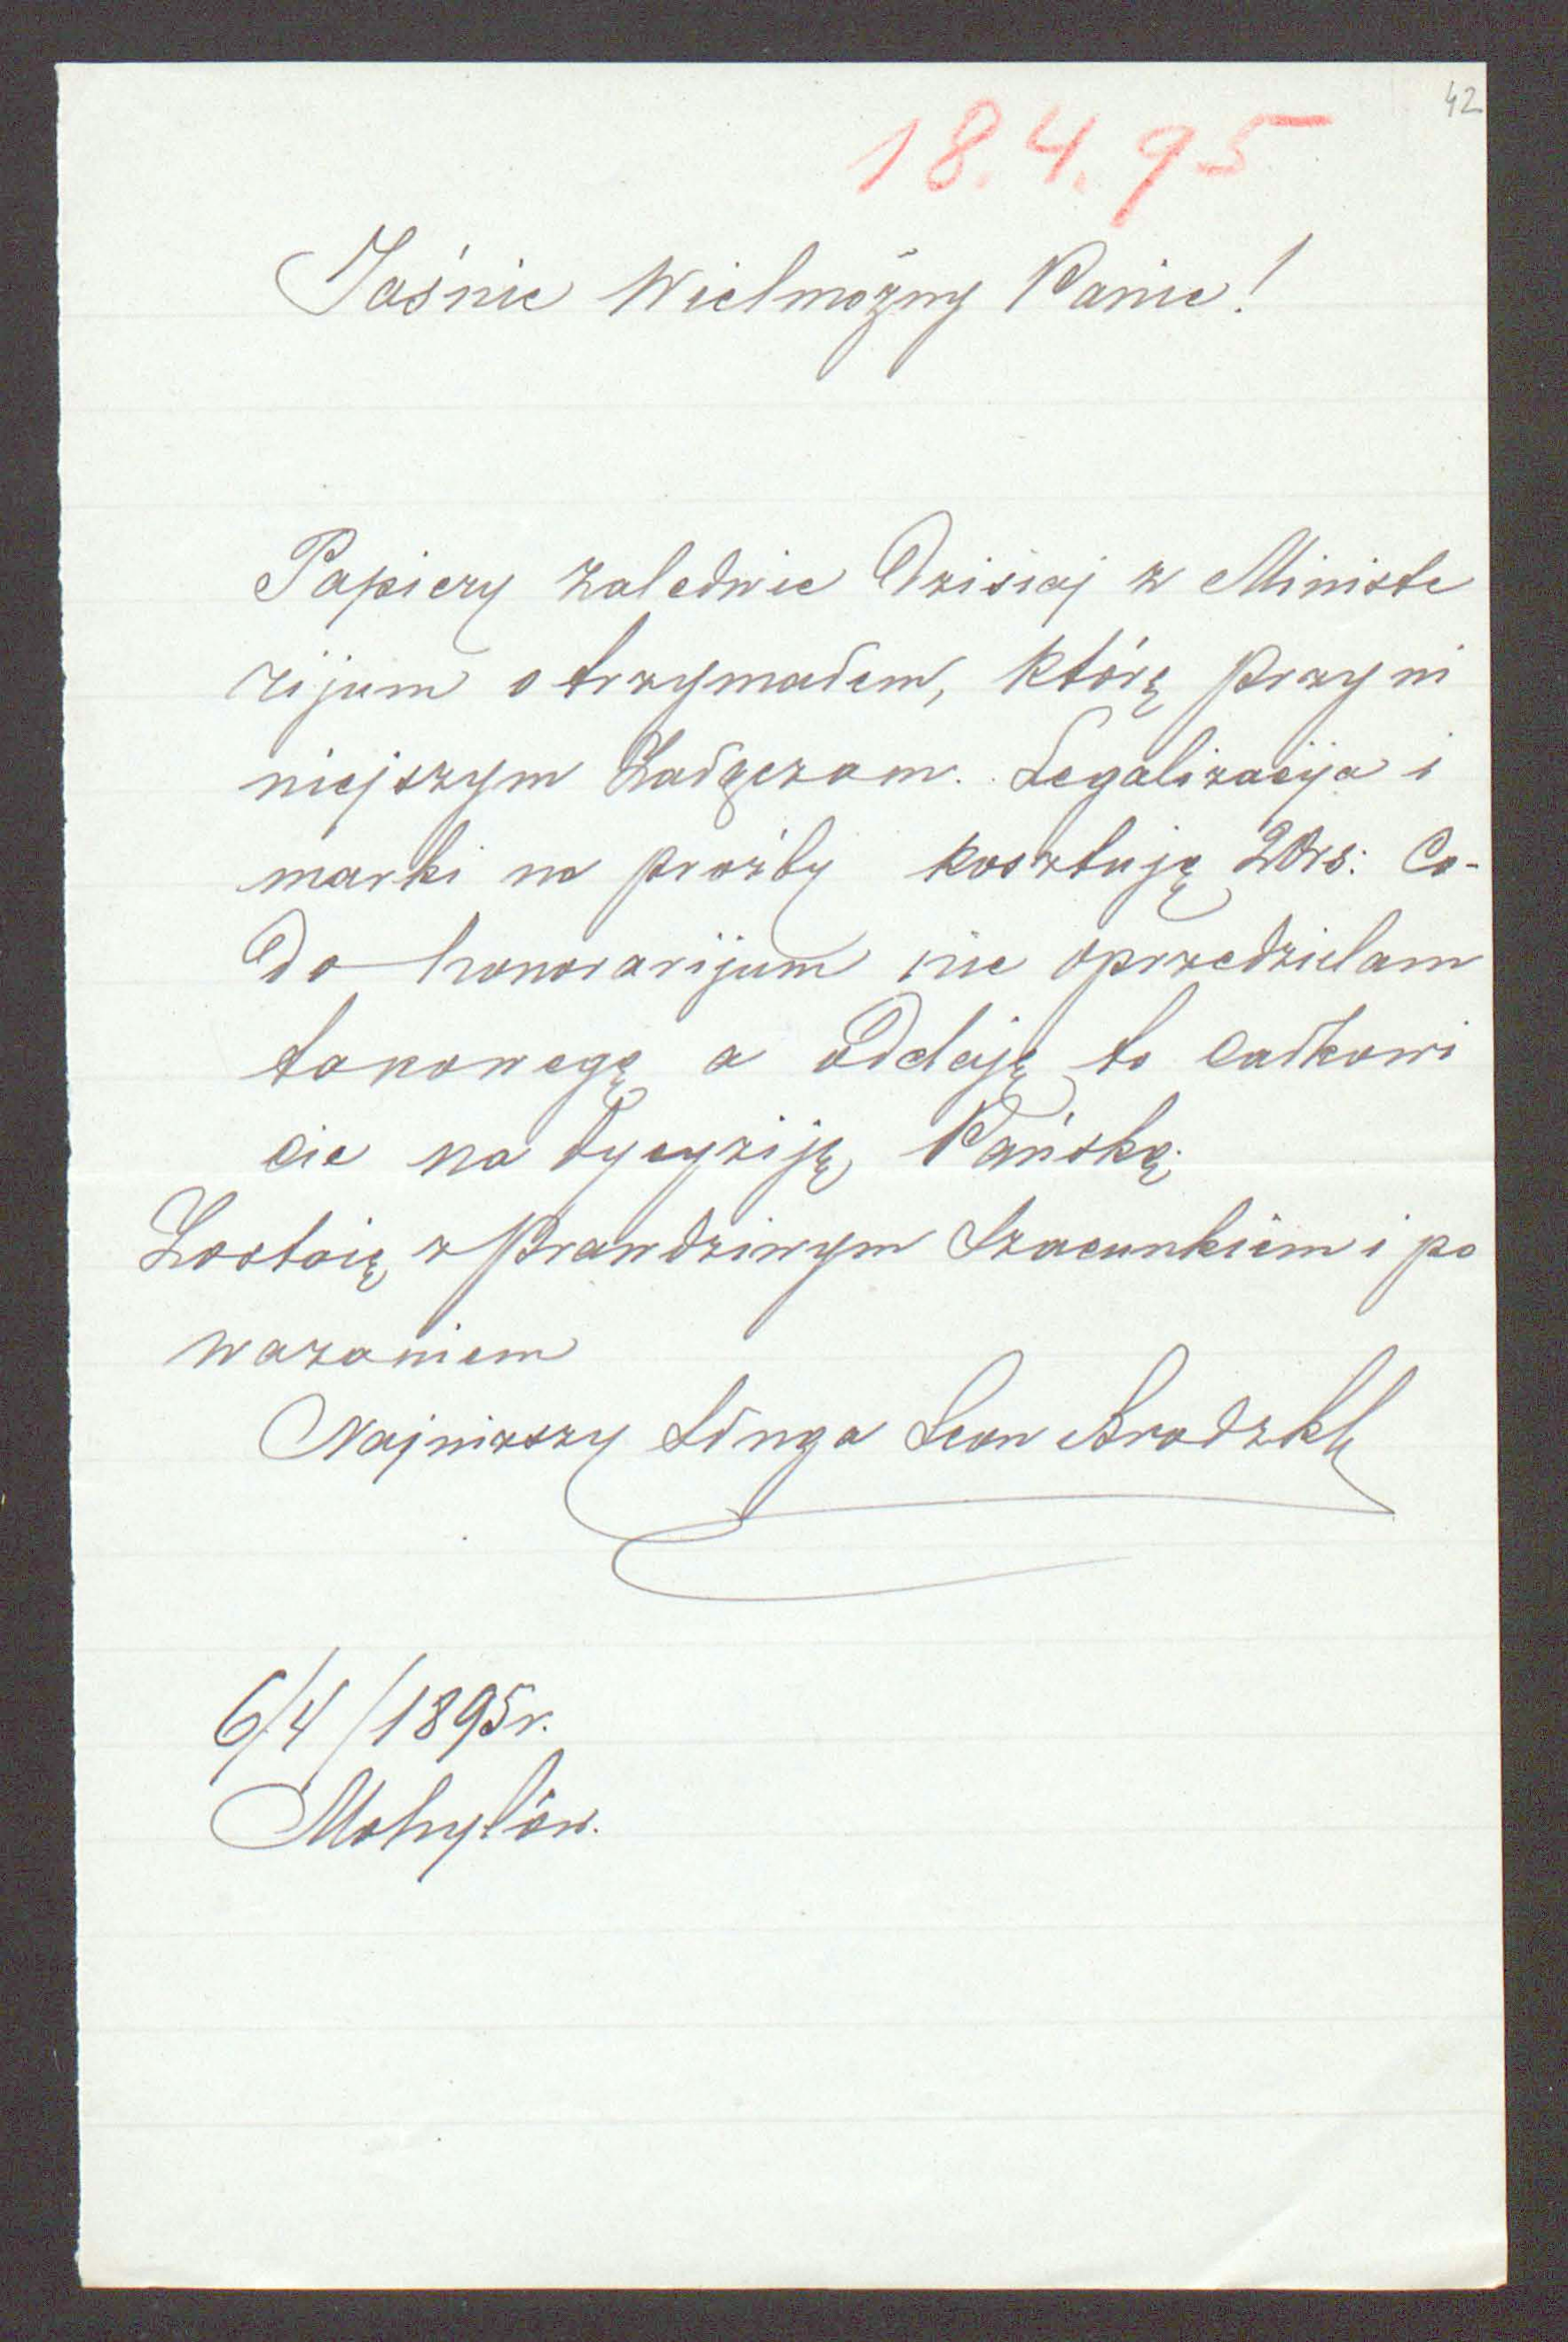 42
18.4.95
Jaśnie Wielmożny Panie!
Papiery zaledwie Dzisiaj z Ministe
rijum otrzymałem, którę przy ni
niejszym Załączam. Legalizacija i
marki na prozby kosztują 20rs: Co-
do honorarijum nie oprzedzielam
takowegę a oddaję to całkowi
cie na dycyziję Pańską.
Zostaię z Prawdziwym Szacunkiem i po
wazaniem
Najnizszy Sługa Leon Brodzki
6/4/1895r.
Mohylów.